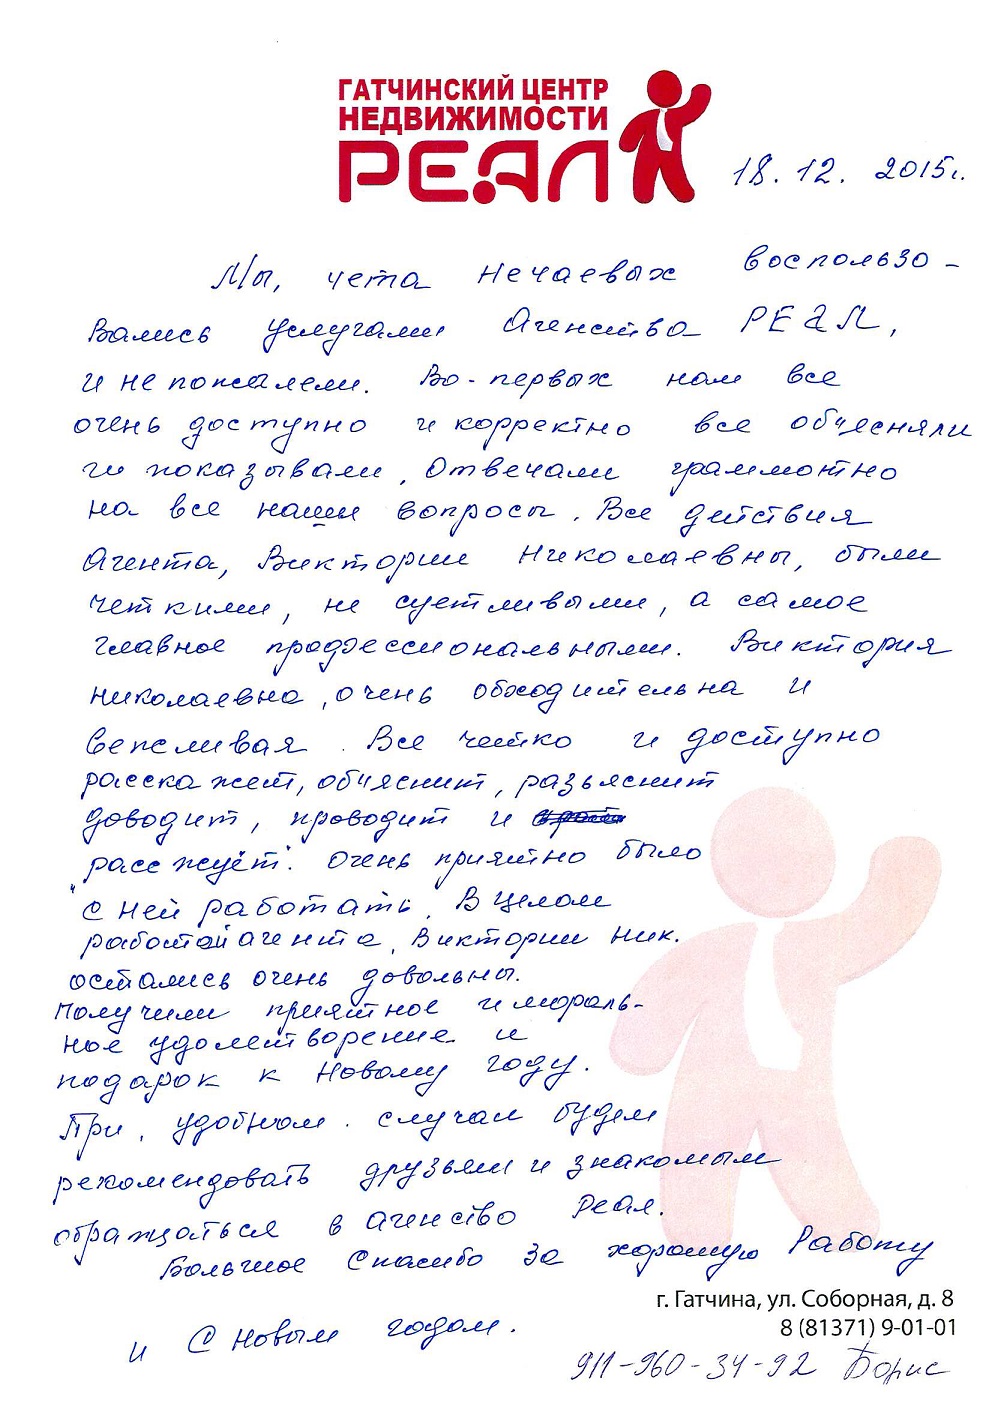 ГАТЧИНСКИЙ ЦЕНТР
НЕДВИЖИМОСТИ
РЕАЛ
18.12.2015г.
Мы, чета Нечаевых воспользо-
вались услугами Агенства РЕАЛ,
и не пожалели. Во-первых нам все
очень доступно и корректно все обчесняли
и показывали, отвечали граммотно
на все наши вопросы. Все действия
Агента, Виктории Николаевны, были
четкими, не суетливыми, а самое
главное профессиональными. Виктория
Николаевна, очень обходительна и
вепсливая. Все четко и доступно
расскажет, обчяснит, разъяснит
доводит, проводит и
"рассжуёт". Очень приятно было
с ней работать. В целом
работой агента, Виктории Ник.
остались очень довольны.
Получили приятное и мораль-
ное удолетворение и
подарок к Новому году.
При, удобном случаи будем
рекомендовать друзьям и знакомым
обращаться в агенство Реал.
Большое Спасибо за хорошую Работу
и С Новым годом.
г. Гатчина, ул. Соборная, д. 8
8 (81371) 9-01-01
911-960-34-92 Борис